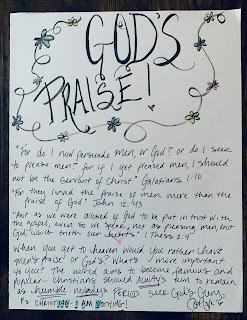 GOD'S
PRAISE!
"For do I now persuade men, or God? or do I seek
to please men? for if I yet pleased men, I should
not be the servant of Christ." Galatians 1:10
"For they loved the praise of men more than the
praise of God." John 12:43
"But as we were allowed of God to be put in trust with
the gospel, even so we speak; not as pleasing men, but
God, which trieth our hearts." 1 Thess. 2:4
When you get to heaven would you rather have
men's praise or God's? What's more important
to you? The world aims to become famous and
popular - Christians should always aim to remain
humble nobodies. PERIOD. Seek God's Glory,
P.S CHRISTIAN - I AM NOTHING!